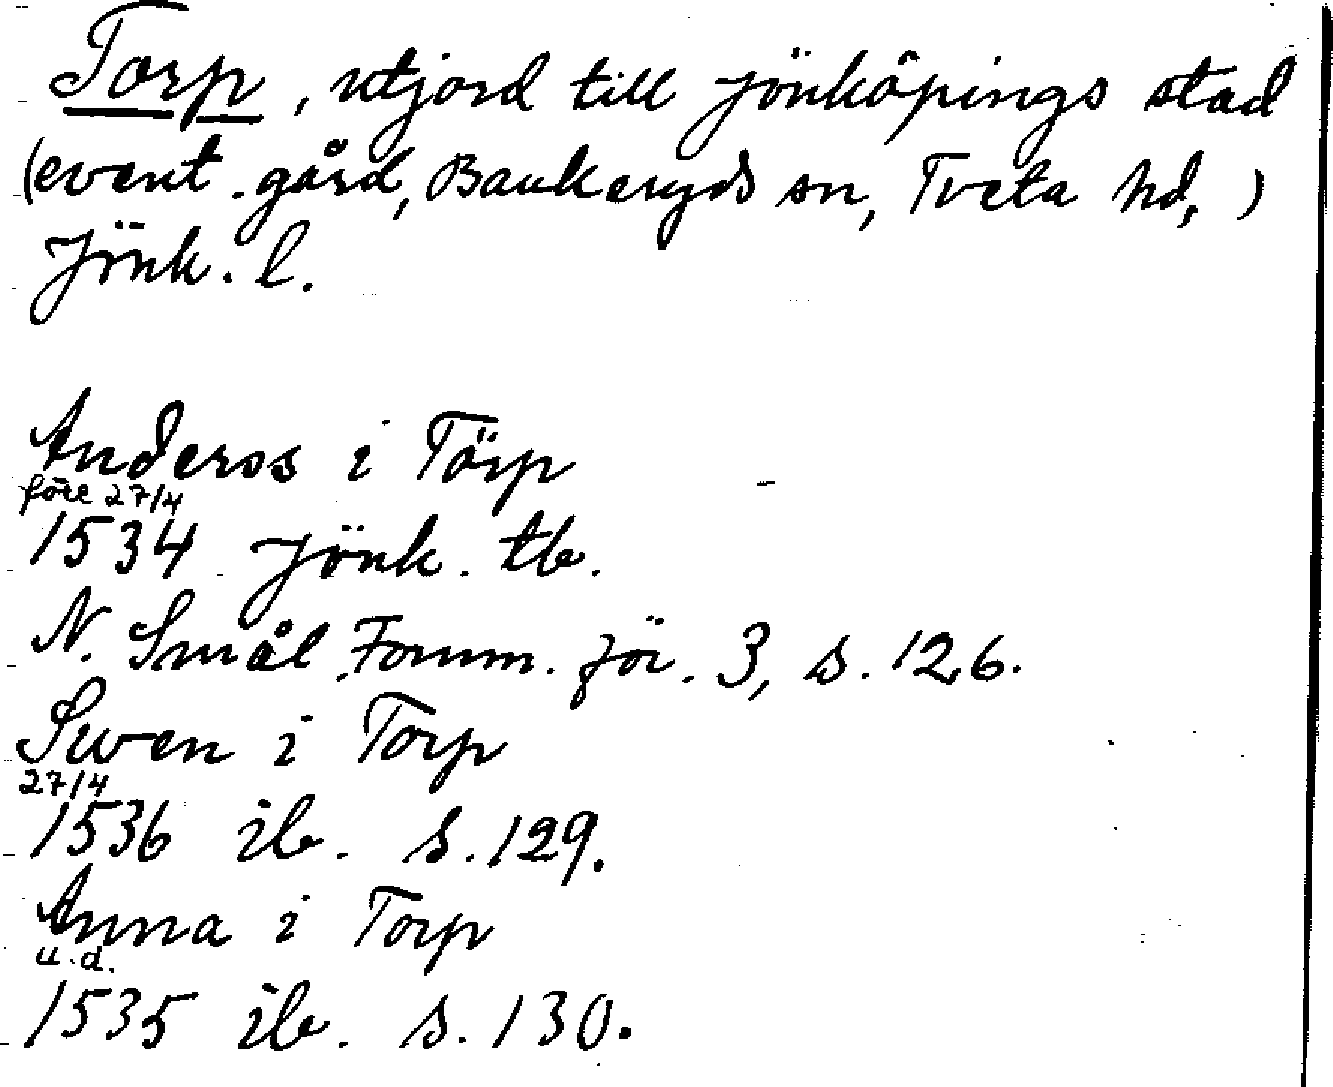 Torp, utjord till Jönköpings stad
(event. gård, Bankeryds sn, Tveta hd,)
Jönk. l.
Anderos i Törp
före 27/4
1534 Jönk. tb.
N. Smål. Fornm. för. 3, s. 126.
Swen i Torp
27/4
1536 ib. s. 129.
Anna i Torp
u.d.
1535 ib. s. 130.